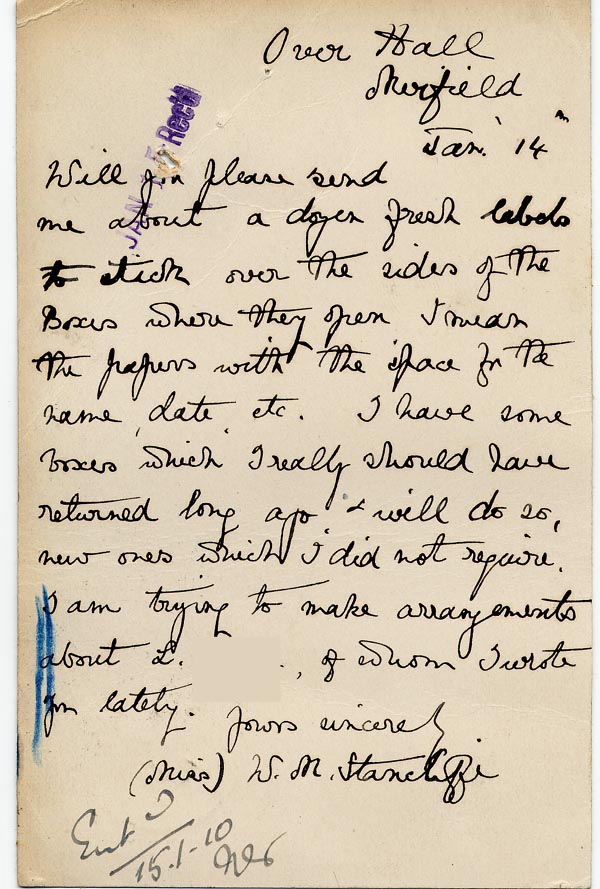 Over Hall
Mirfield
Jan. 14
JAN Recd
Will you please send
me about a dozen fresh labels
to stick over the sides of the
Boxes where they open I mean
the papers with the space for the
name, date, etc. I have some
boxes which I really should have
returned long ago & will do so,
new ones which I did not require.
I am trying to make arrangements
about L. , of whom I wrote
you lately.
Yours sincerely
(Miss) W. M. Stancliffe
15.1.10